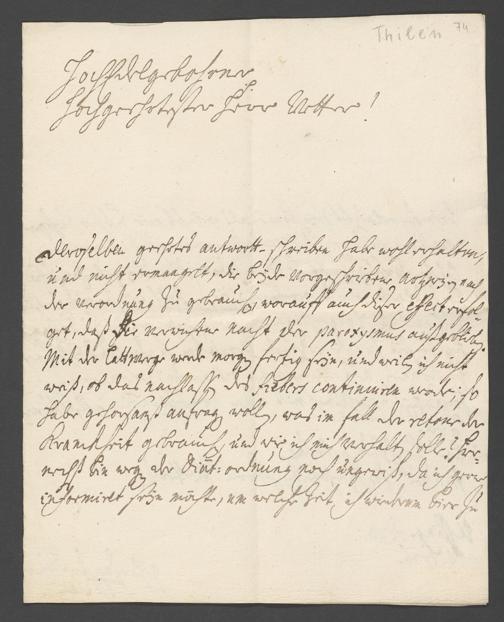 Thilen 74
HochEdelgebohrner
Hochgeehrtester Herr Vetter!
Deroselben geehrtes antwortt-schreiben habe wohl erhalten,
und nicht ermangelt, die beyde vorgeschriebene nach
der verordnung zu gebrauch, worauff auch dieser effect erfol-
get, daß die verwichne nacht der paroxysmus außgeblieb.
Mit der Lattwerge werde morg. fertig seyn, und weil ich nicht
weiß, ob das nachlassen des fiebers continuiren werde; so
habe gehorsamst anfrag. woll., was im fall der retour der
Kranckheit gebrauch. und wie ich mich verhalt. solle? Her-
nechst bin weg. der Diät-ordnung noch ungewiß, da ich gerne
informiret seyn möchte, um welche Zeit ich wiederum bier zu